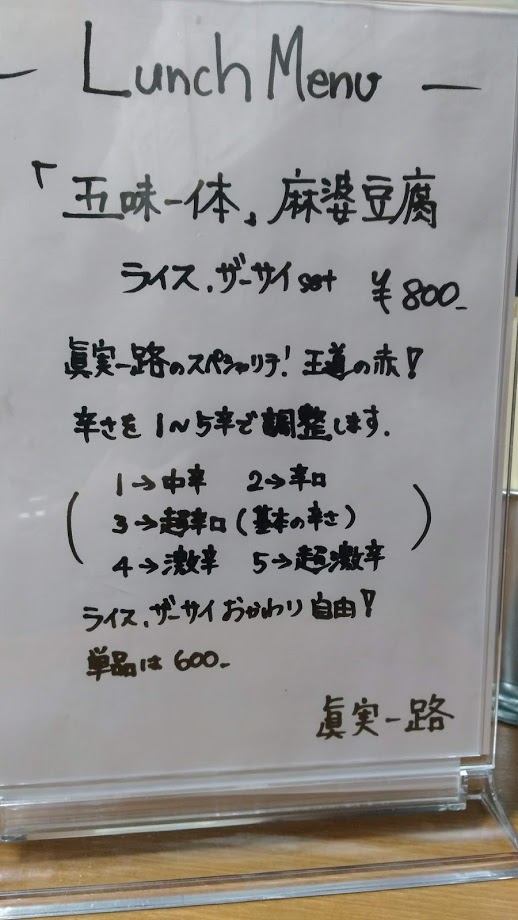 - Lunch Menu -
「五味一体」麻婆豆腐
ライス、ザーサイ set ¥800-
眞実一路のスペシャリテ! 王道の赤!
辛さを1~5辛で調整します.
1→中辛 2→辛口
3→超辛口(基本の辛さ)
4→激辛 5→超激辛
ライス、ザーサイおかわり自由!
単品は600-
眞実一路